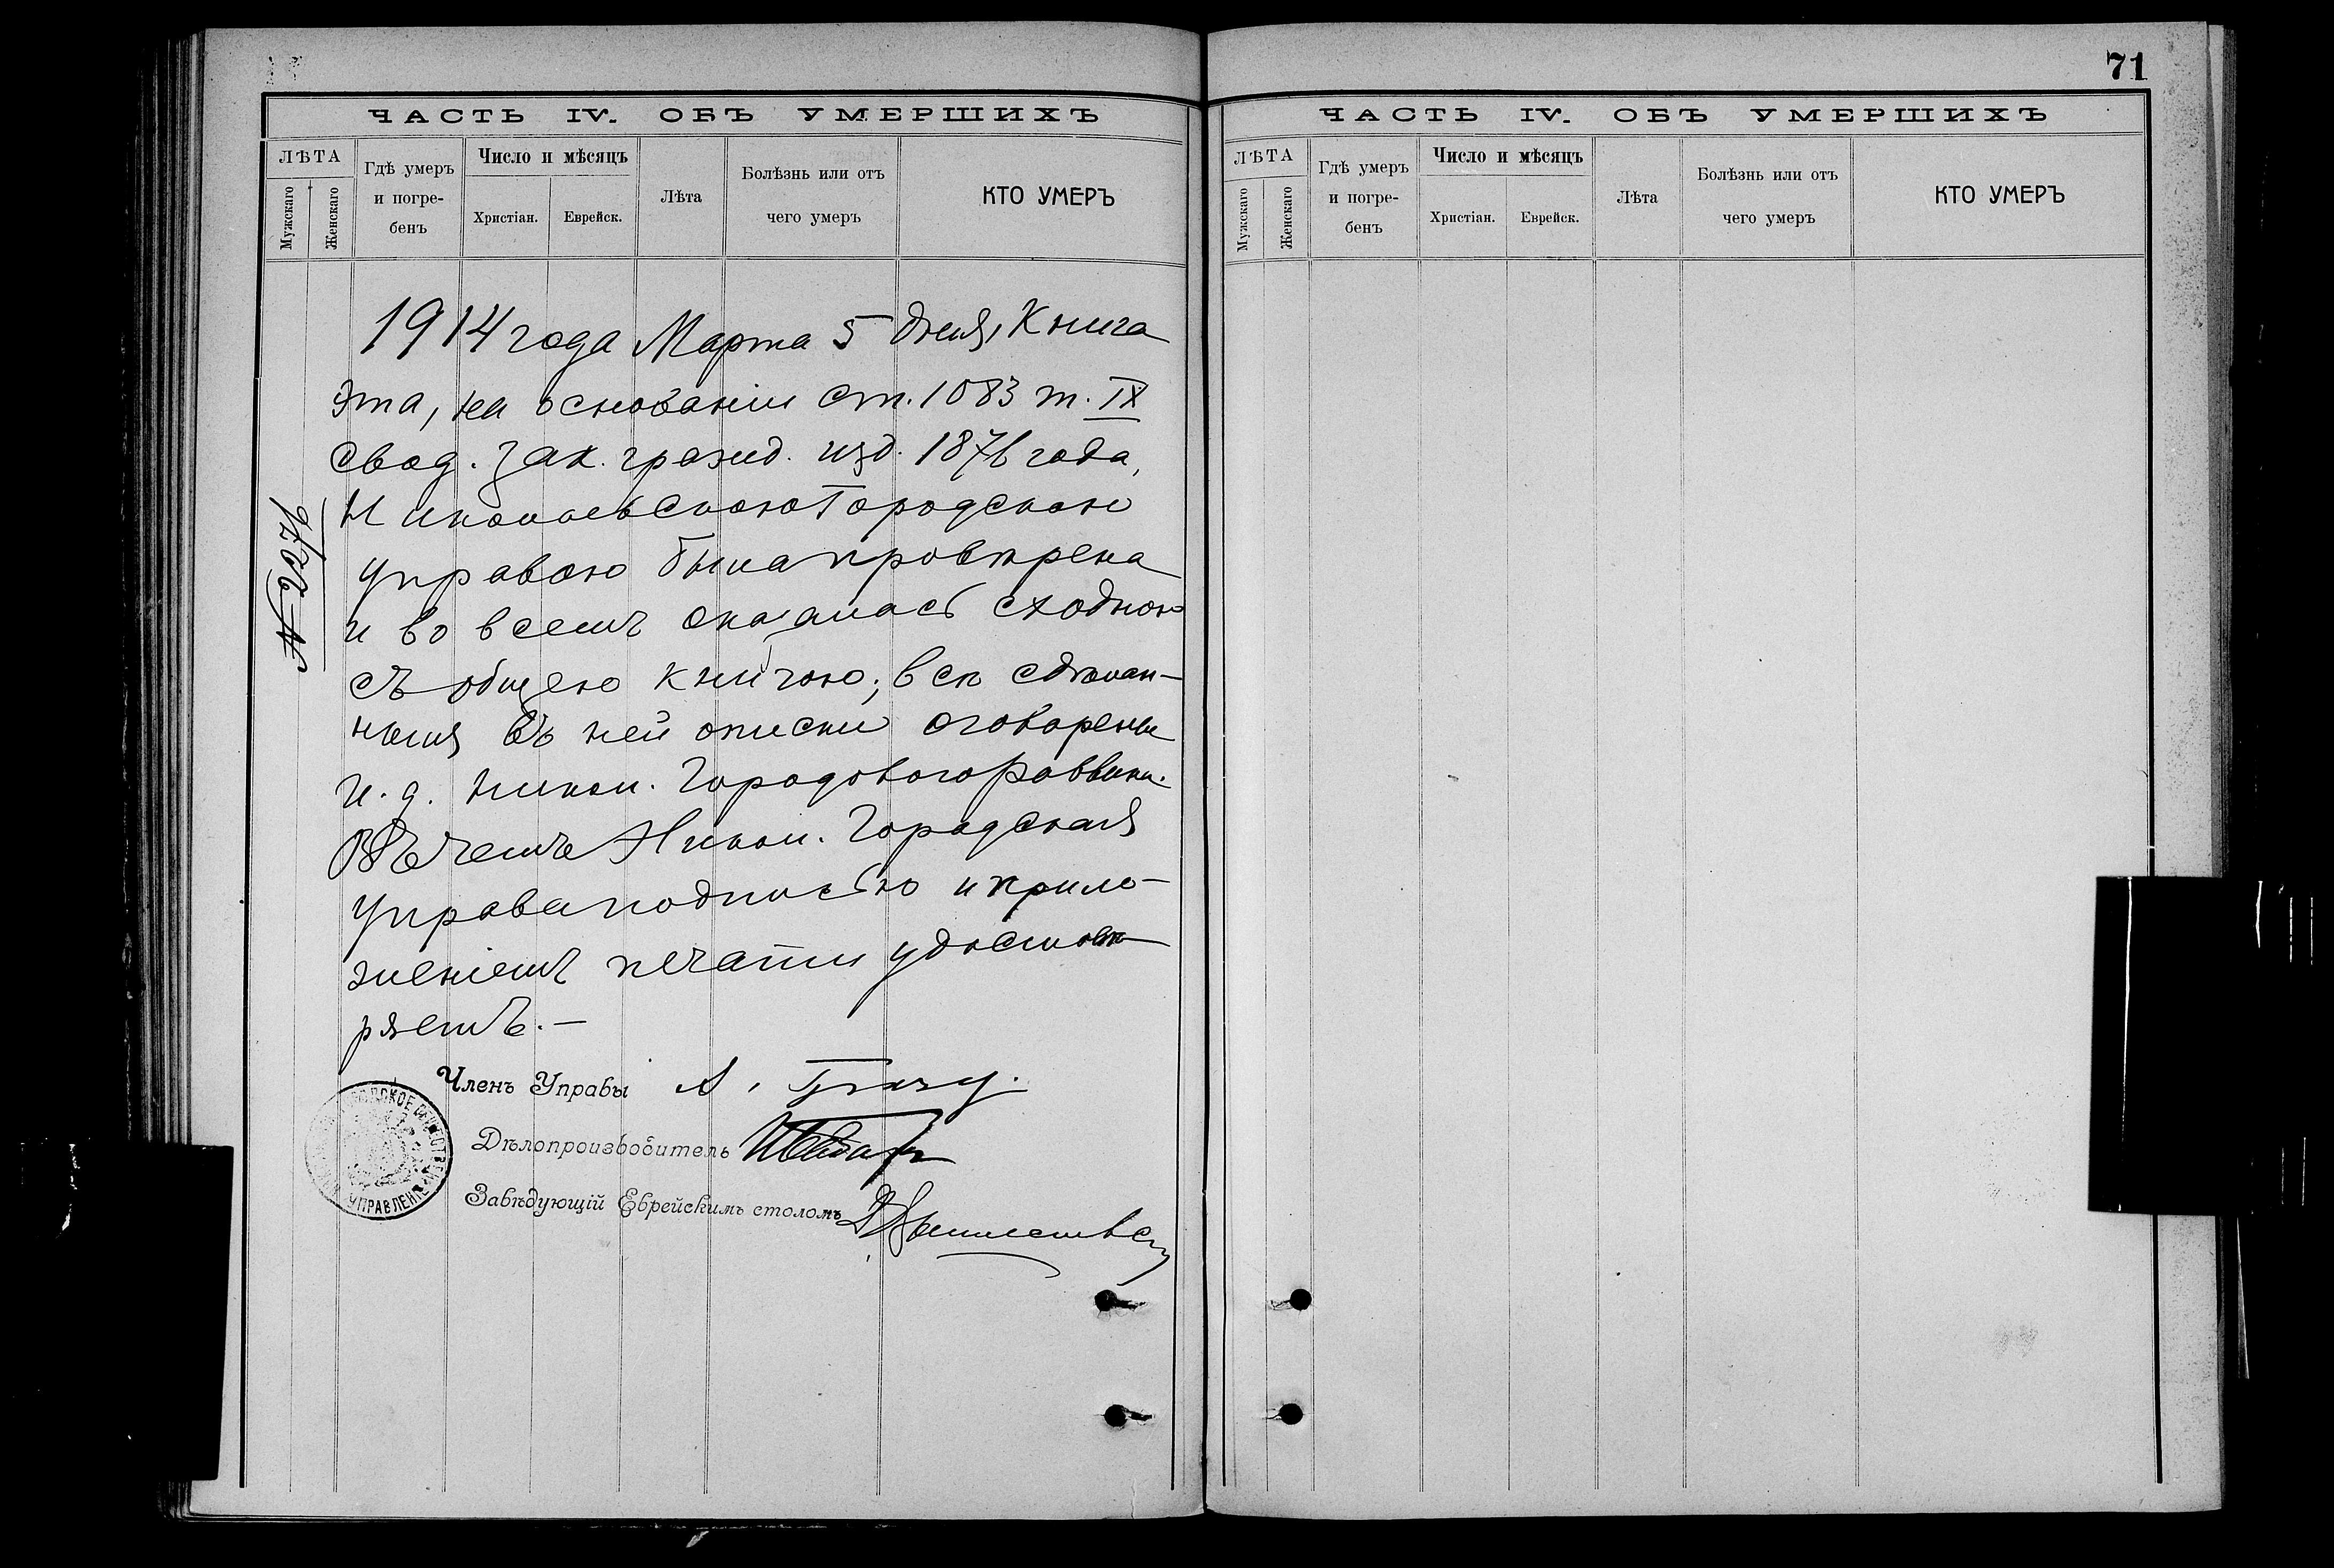 71
ЧАСТЬ IV. ОБЪ УМЕРШИХЪ
ЛѢТА
Мужскаго
Женскаго
Гдѣ умеръ
и погре-
бенъ
Число и мѣсяцъ
Христіан.
Еврейск.
Лѣта
Болѣзнь или отъ
чего умеръ
КТО УМЕРЪ
1914 года Марта 5 дня, Книга
эта, на основаніи ст. 1083 т. IX
Свод. Зак. гражд. изд. 1876 года,
Николаевскою Городскою
Управою была провѣрена
и во всемъ оказалась сходною
съ общею книгою; всѣ сдѣлан-
ныя въ ней описки оговорены
И. д. Никол. Городового Раввина.
Въ чемъ Никол. Городская
Управа подписью и прило-
женіемъ печати удостовѣ-
ряетъ. —
№ 2276
Членъ Управы А.
Дѣлопроизводитель
Завѣдующій Еврейскимъ столомъ
УПРАВЛЕНІЕ
ЧАСТЬ IV. ОБЪ УМЕРШИХЪ
ЛѢТА
Мужскаго
Женскаго
Гдѣ умеръ
и погре-
бенъ
Число и мѣсяцъ
Христіан.
Еврейск.
Лѣта
Болѣзнь или отъ
чего умеръ
КТО УМЕРЪ